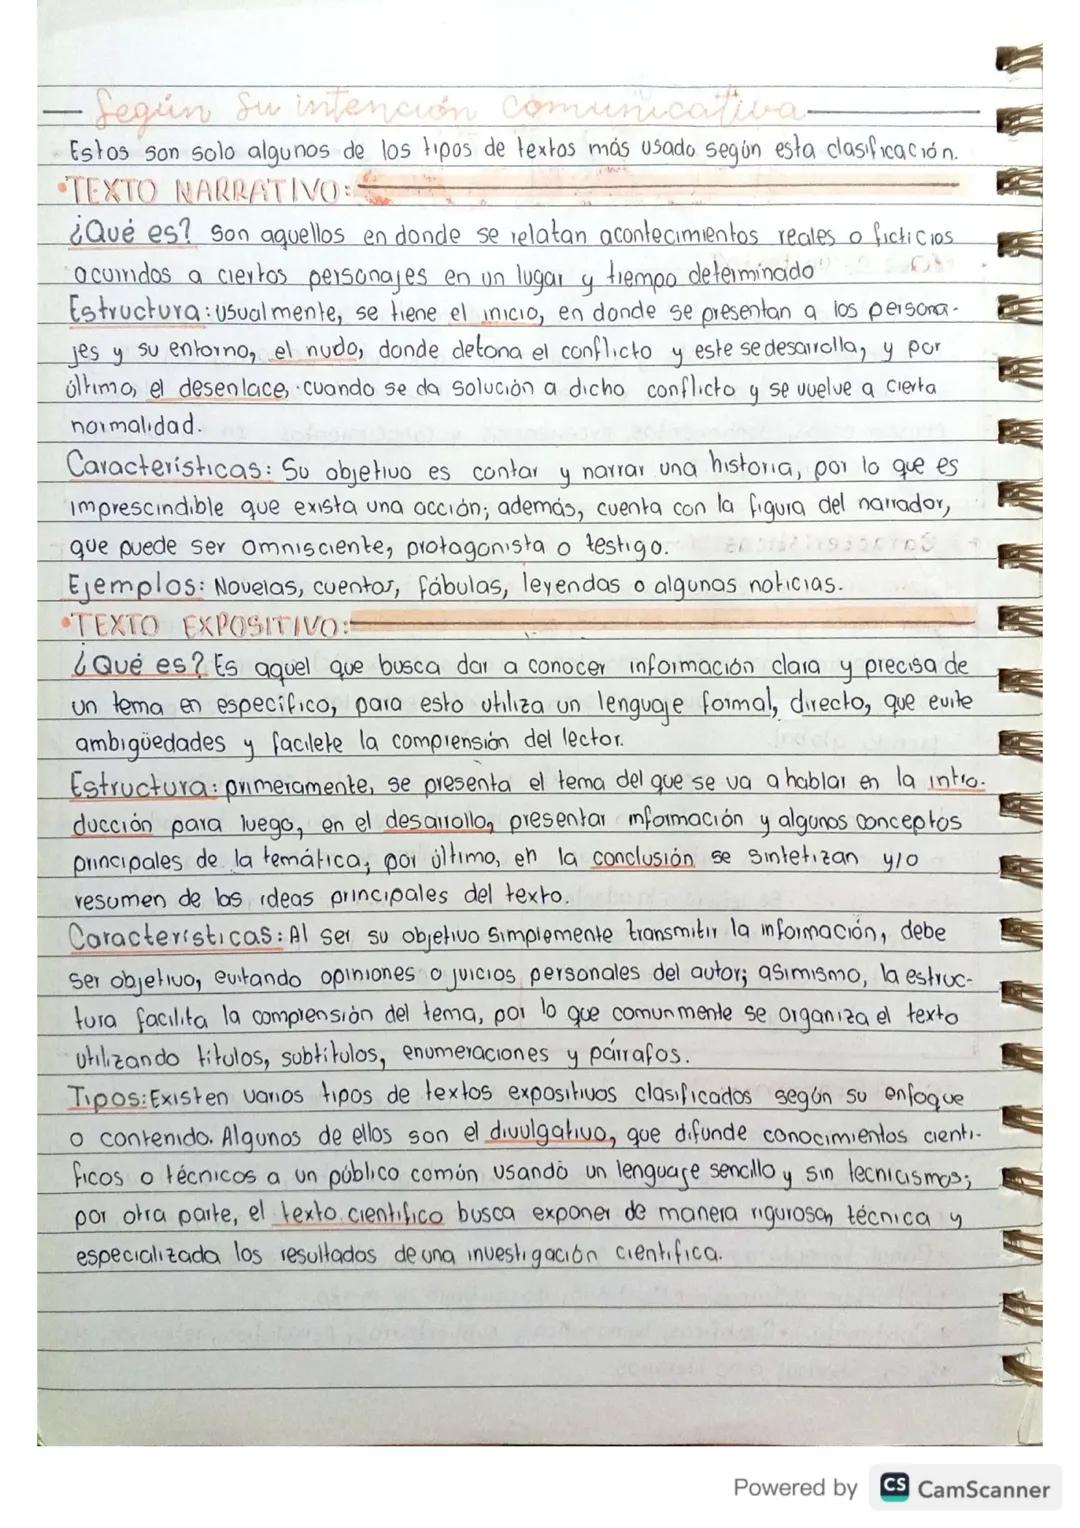 Según su intención comunicativa
Estos son solo algunos de los tipos de textos más usado según esta clasificación.
•TEXTO NARRATIVO:
¿Qué es? Son aquellos en donde se relatan acontecimientos reales o ficticios
ocurridos a ciertos personajes en un lugar y tiempo determinado
Estructura: usualmente, se tiene el inicio, en donde se presentan a los persona-
jes y su entorno, el nudo, donde detona el conflicto y este se desarrolla, y por
último, el desenlace, cuando se da solución a dicho conflicto y se vuelve a cierta
normalidad.
Características: Su objetivo es contar y narrar una historia, por lo que es
imprescindible que exista una acción; además, cuenta con la figura del narrador,
que puede ser omnisciente, protagonista o testigo.
Ejemplos: Novelas, cuentos, fábulas, leyendas o algunas noticias.
•TEXTO EXPOSITIVO:
¿Qué es? Es aquel que busca dar a conocer información clara y precisa de
un tema en específico, para esto utiliza un lenguaje formal, directo, que evite
ambigüedades y facilete la comprensión del lector.
Estructura: primeramente, se presenta el tema del que se va a hablar en la intro-
ducción para luego, en el desarrollo, presentar información y algunos conceptos
principales de la temática; por último, en la conclusión se sintetizan y/o
resumen de las ideas principales del texto.
Características: Al ser su objetivo simplemente transmitir la información, debe
ser objetivo, evitando opiniones o juicios personales del autor; asimismo, la estruc-
tura facilita la comprensión del tema, por lo que comunmente se organiza el texto
utilizando títulos, subtítulos, enumeraciones y párrafos.
Tipos: Existen varios tipos de textos expositivos clasificados según su enfoque
o contenido. Algunos de ellos son el divulgativo, que difunde conocimientos cientí-
ficos o técnicos a un público común usando un lenguaje sencillo y sin tecnicismos;
por otra parte, el texto científico busca exponer de manera rigurosa, técnica y
especializada los resultados de una investigación científica.
Powered by CS CamScanner